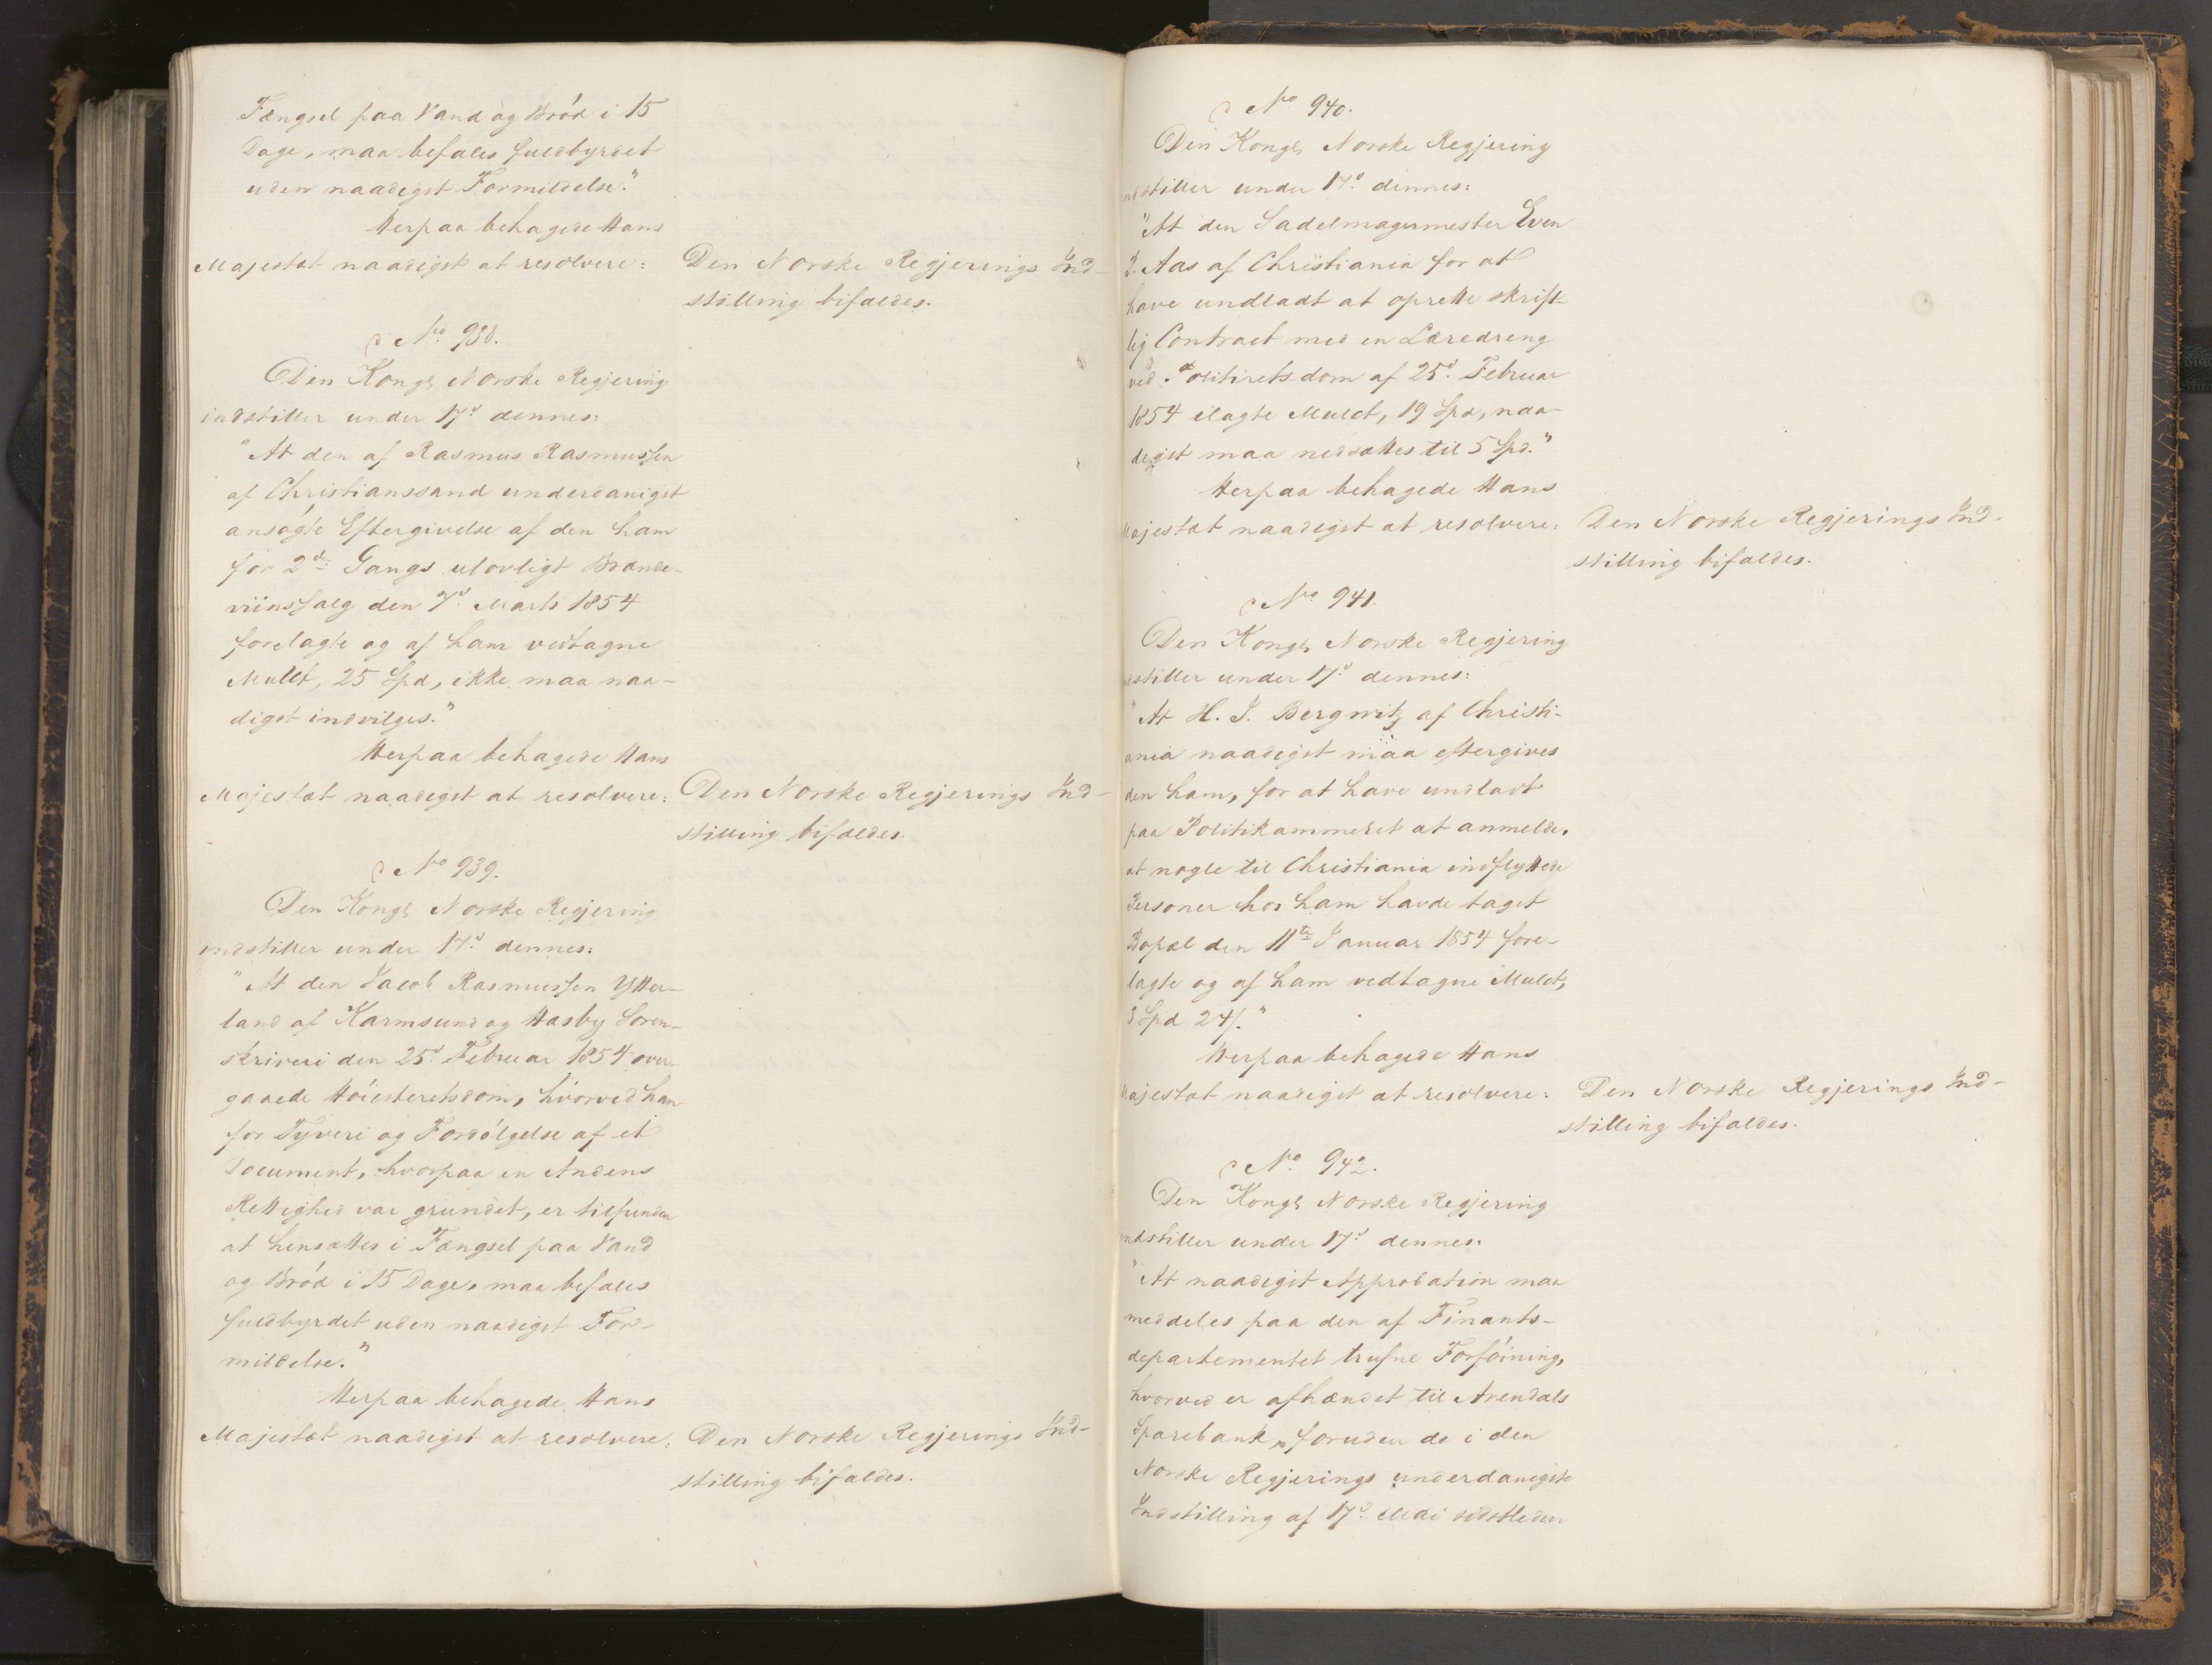 Fængsel paa Vand og Brød i 15
Dage, maa befales fuldbyrdet
uden naadigst Formildelse."
Herpaa behagede Hans
Majestæt naadigst at resolvere:
Den Norske Regjerings Ind-
stilling bifaldes.
No 938.
Den Kongl. Norske Regjering
indstiller under 17d. dennes:
"At den af Rasmus Rasmussen
af Christianssand underdanigst
ansøgte Eftergivelse af den ham
for 2den Gangs ulovligt Brænde-
viinssalg den 7d. Marts 1854
forelagte og af ham vedtagne
Mulct, 25 Spd, ikke maa naa-
digst indvilges."
Herpaa behagede Hans
Majestæt naadigst at resolvere:
Den Norske Regjerings Ind-
stilling bifaldes.
No 939.
Den Kongl. Norske Regjering
indstiller under 17d. dennes:
"At den Jacob Rasmussen Ytter-
land af Karmsund og Hasby Soren-
skriveri den 25d. Februar 1854 over-
gaaede Höiesteretsdom, hvorved han
for Tyveri og Fordølgelse af et
Document, hvorpaa en Andens
Rettighed var grundet, er tilfunden
at hensættes i Fængsel paa Vand
og Brød i 15 Dage, maa befales
fuldbyrdet uden naadigst For-
mildelse."
Herpaa behagede Hans
Majestæt naadigst at resolvere:
Den Norske Regjerings Ind-
stilling bifaldes.
No 940.
Den Kongl. Norske Regjering
indstiller under 17d. dennes:
"At den Sadelmagermester Even
J. Aas af Christiania for at
have undladt at oprette skrift-
lig Contract med en Læredreng
ved Politirets-dom af 25d. Februar
1854 ilagte Mulct, 19 Spd, naa-
digst maa nedsættes til 5 Spd."
Herpaa behagede Hans
Majestæt naadigst at resolvere:
Den Norske Regjerings Ind-
stilling bifaldes.
No 941.
Den Kongl. Norske Regjering
indstiller under 17d. dennes:
"At H. J. Bergwitz af Christi-
ania naadigst maa eftergives
den ham, for at have undladt
paa Politikammeret at anmelde,
at nogle til Christiania indflyttede
Personer hos ham havde taget
Bopæl den 11te Januar 1854 fore-
lagte og af ham vedtagne Mulct,
Spd 24/."
Herpaa behagede Hans
Majestæt naadigst at resolvere:
Den Norske Regjerings Ind-
stilling bifaldes.
No 942.
Den Kongl. Norske Regjering
indstiller under 17d. dennes:
"At naadigst Approbation maa
meddeles paa den af Finants-
departementet trufne Forføining,
hvorved er afhændet til Arendals
Sparebank, foruden de i den
Norske Regjerings underdanigste
Indstilling af 17d. Mai sidstleden